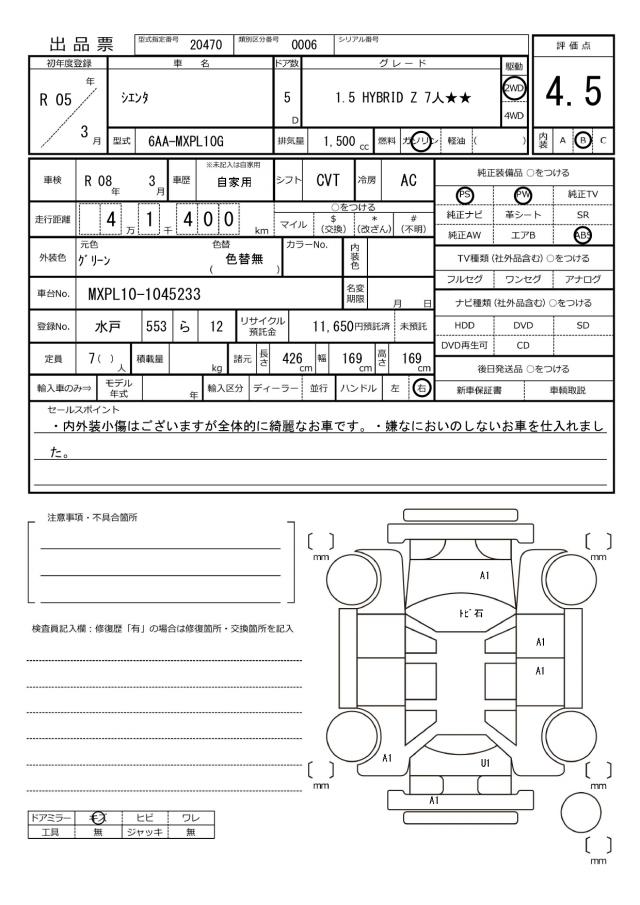 出品票 型式指定番号 20470 類別区分番号 0006 シリアル番号
評価点
4.5
初年度登録 車名 ドア数 グレード 駆動
R 05 年 3 月
シエンタ 5 D 1.5 HYBRID Z 7人★★ 2WD
4WD
型式 6AA-MXPL10G 排気量 1,500 cc 燃料 ガソリン 軽油 ( )
内装 A B C
車検 R 08 年 3 月 車歴 ※未記入は自家用 自家用 シフト CVT 冷房 AC
走行距離 4 万 1 千 4 0 0 km
○をつける
マイル $ (交換) * (改ざん) # (不明)
外装色 元色 グリーン 色替 ( 色替無 ) カラーNo. 内装色
車台No. MXPL10-1045233 名変期限 月 日
登録No. 水戸 553 ら 12 リサイクル預託金 11,650円預託済 未預託
定員 7 ( ) 人 積載量 kg 諸元 長さ 426 cm 幅 169 cm 高さ 169 cm
輸入車のみ⇒ モデル年式 年 輸入区分 ディーラー 並行 ハンドル 左 右
純正装備品 ○をつける
PS PW 純正TV
純正ナビ 革シート SR
純正AW エアB ABS
TV種類 (社外品含む) ○をつける
フルセグ ワンセグ アナログ
ナビ種類 (社外品含む) ○をつける
HDD DVD SD
DVD再生可 CD
後日発送品 ○をつける
新車保証書 車輌取説
セールスポイント
・内外装小傷はございますが全体的に綺麗なお車です。・嫌なにおいのしないお車を仕入れまし
た。
注意事項・不具合箇所
検査員記入欄：修復歴「有」の場合は修復箇所・交換箇所を記入
ドアミラー キズ ヒビ ワレ
工具 無 ジャッキ 無
〔 〕 mm
〔 〕 mm
A1
トビ石
A1
A1
A1
U1
〔 〕 mm
〔 〕 mm
A1
〔 〕 mm